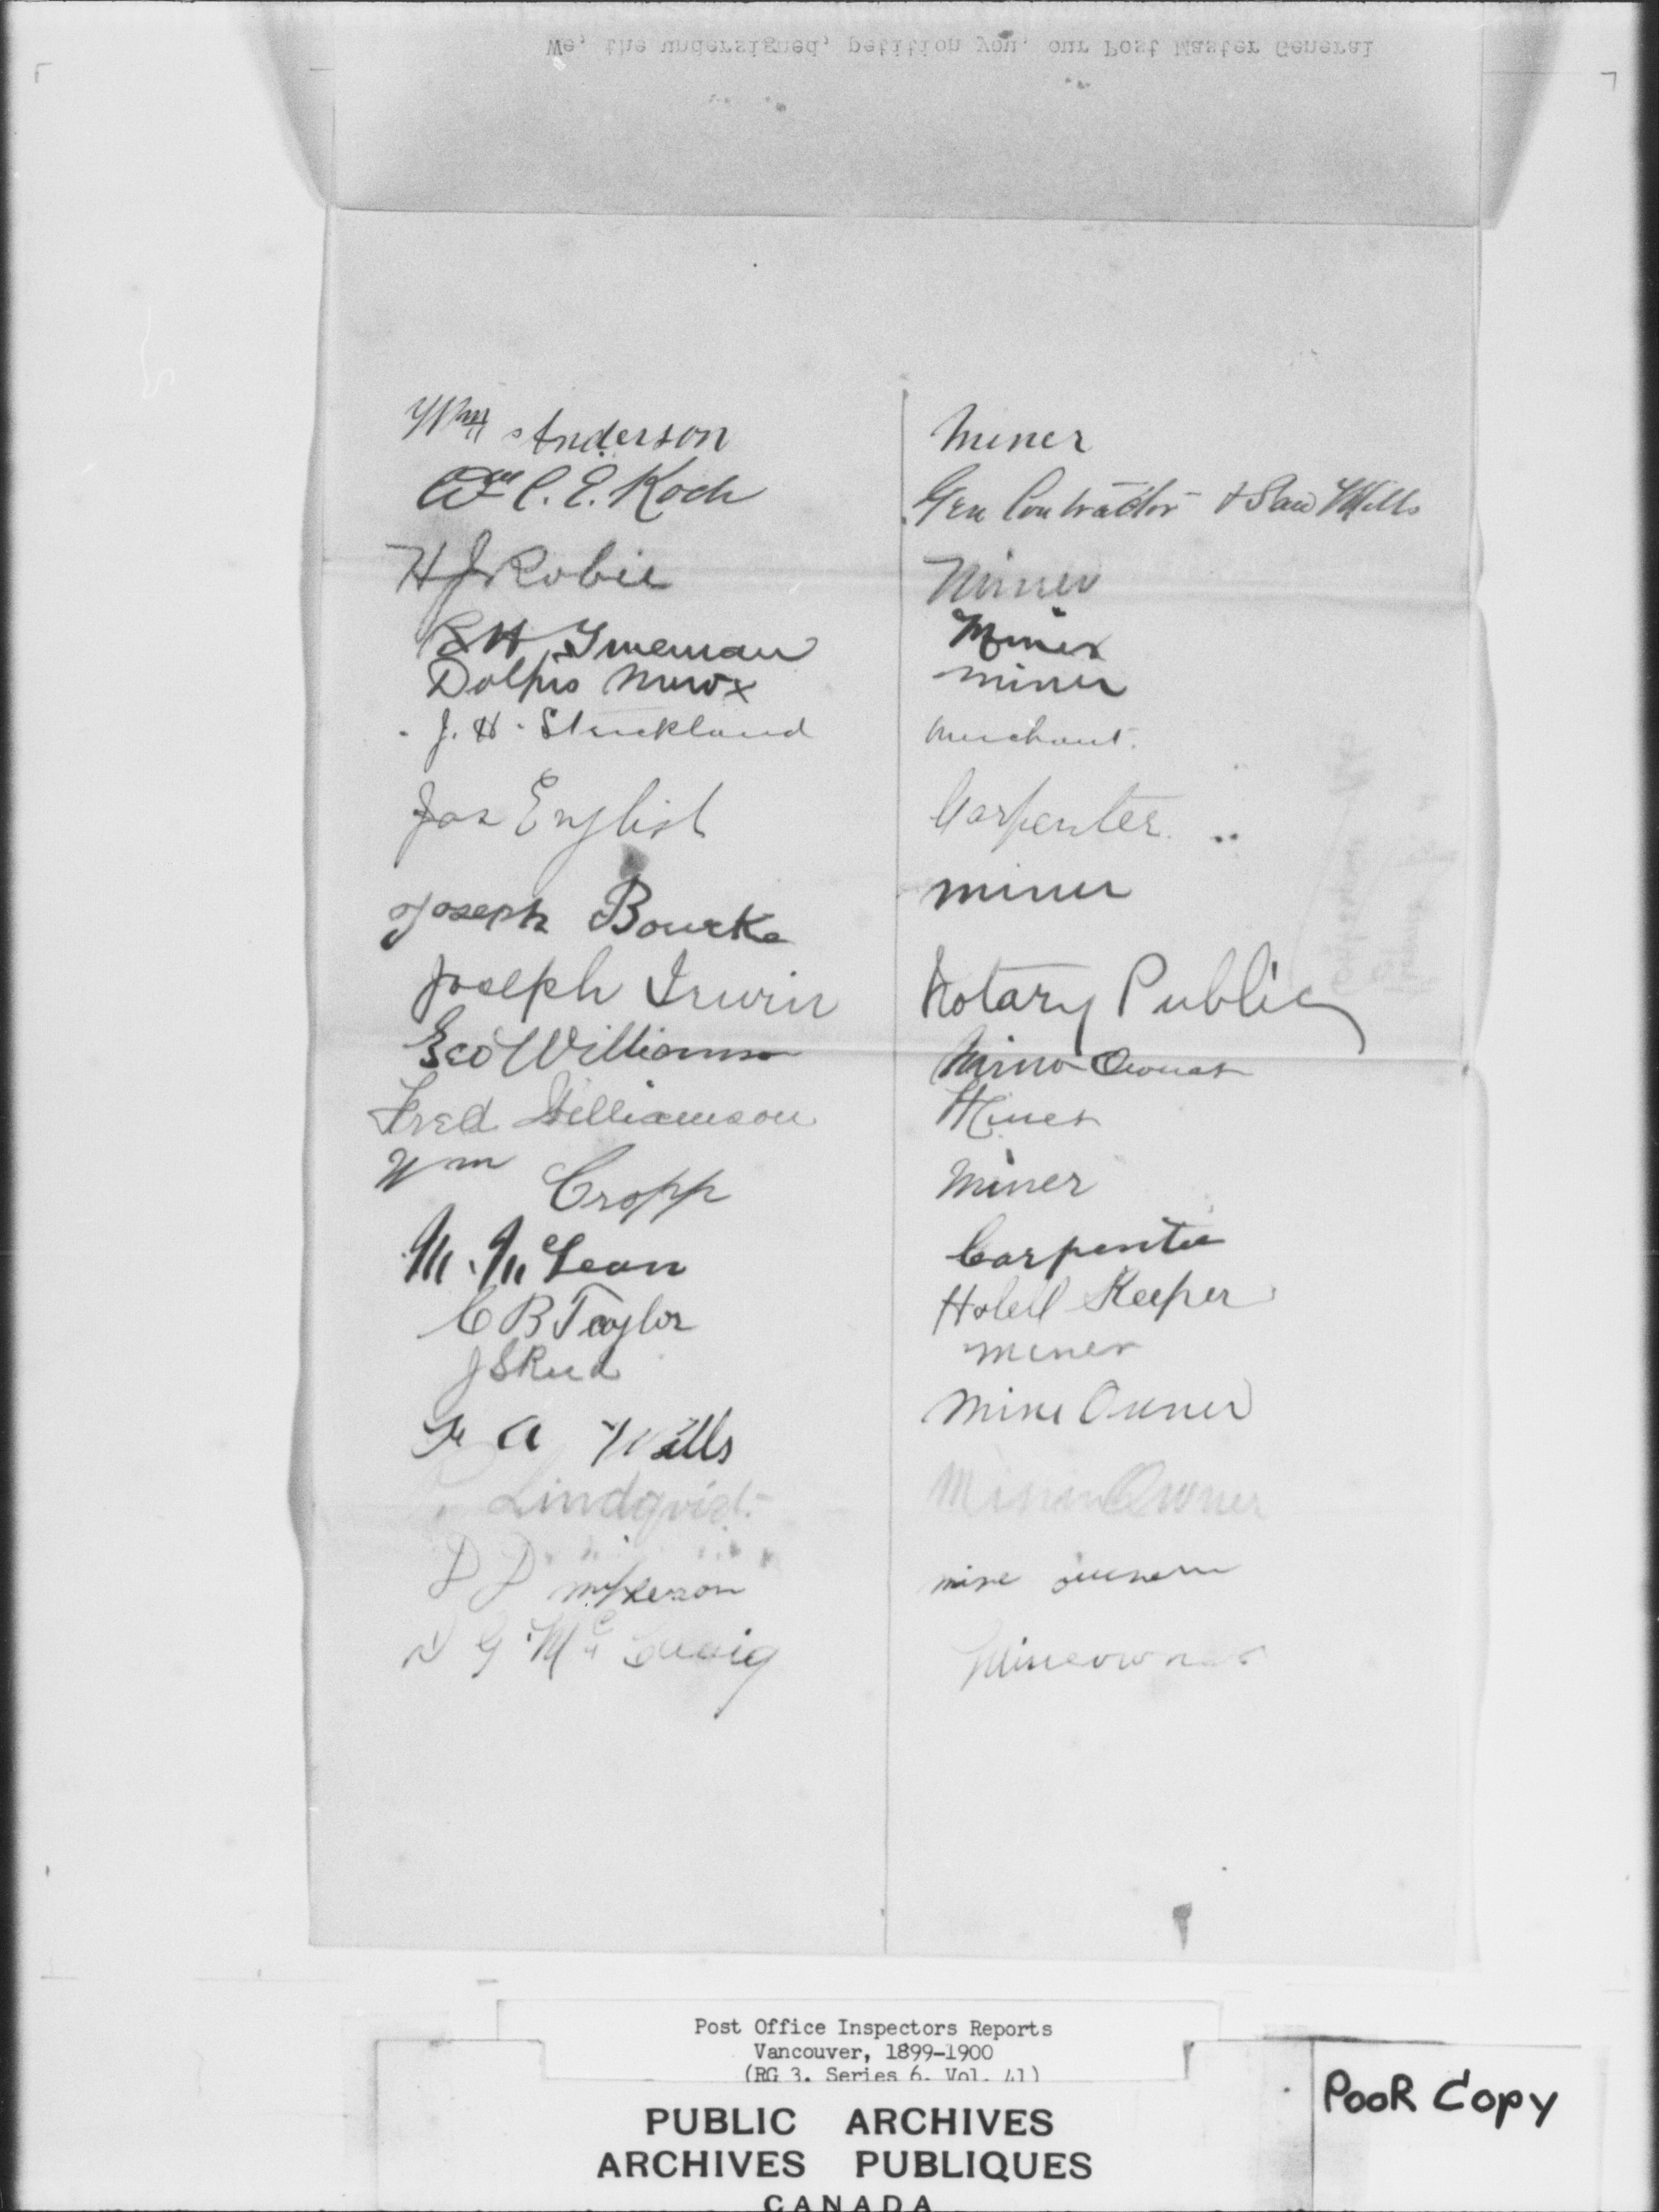 We, the undersigned, petition you, our Post Master General
Wm H Anderson Miner
Wm C. E. Koch Gen Contractor & Saw Mills
H J Robie Miner
Miner
Dolphis miner
J. H. Strickland Merchant.
Jas English Carpenter
Joseph Bourke miner
Joseph Irwin Notary Public
Geo Williamson Mine Owner
Fred Williamson Miner
Wm Cropp Miner
M. McLean Carpenter
C B Taylor Hotell Keeper
J S Reid miner
F A Wells Mine Owner
Lindqvist Owner
D D McPherson mine owner
D G Mc Mineowner
Post Office Inspectors Reports
Vancouver, 1899-1900
(RG 3. Series 6. Vol. 41)
PUBLIC ARCHIVES
ARCHIVES PUBLIQUES
CANADA
POOR COPY